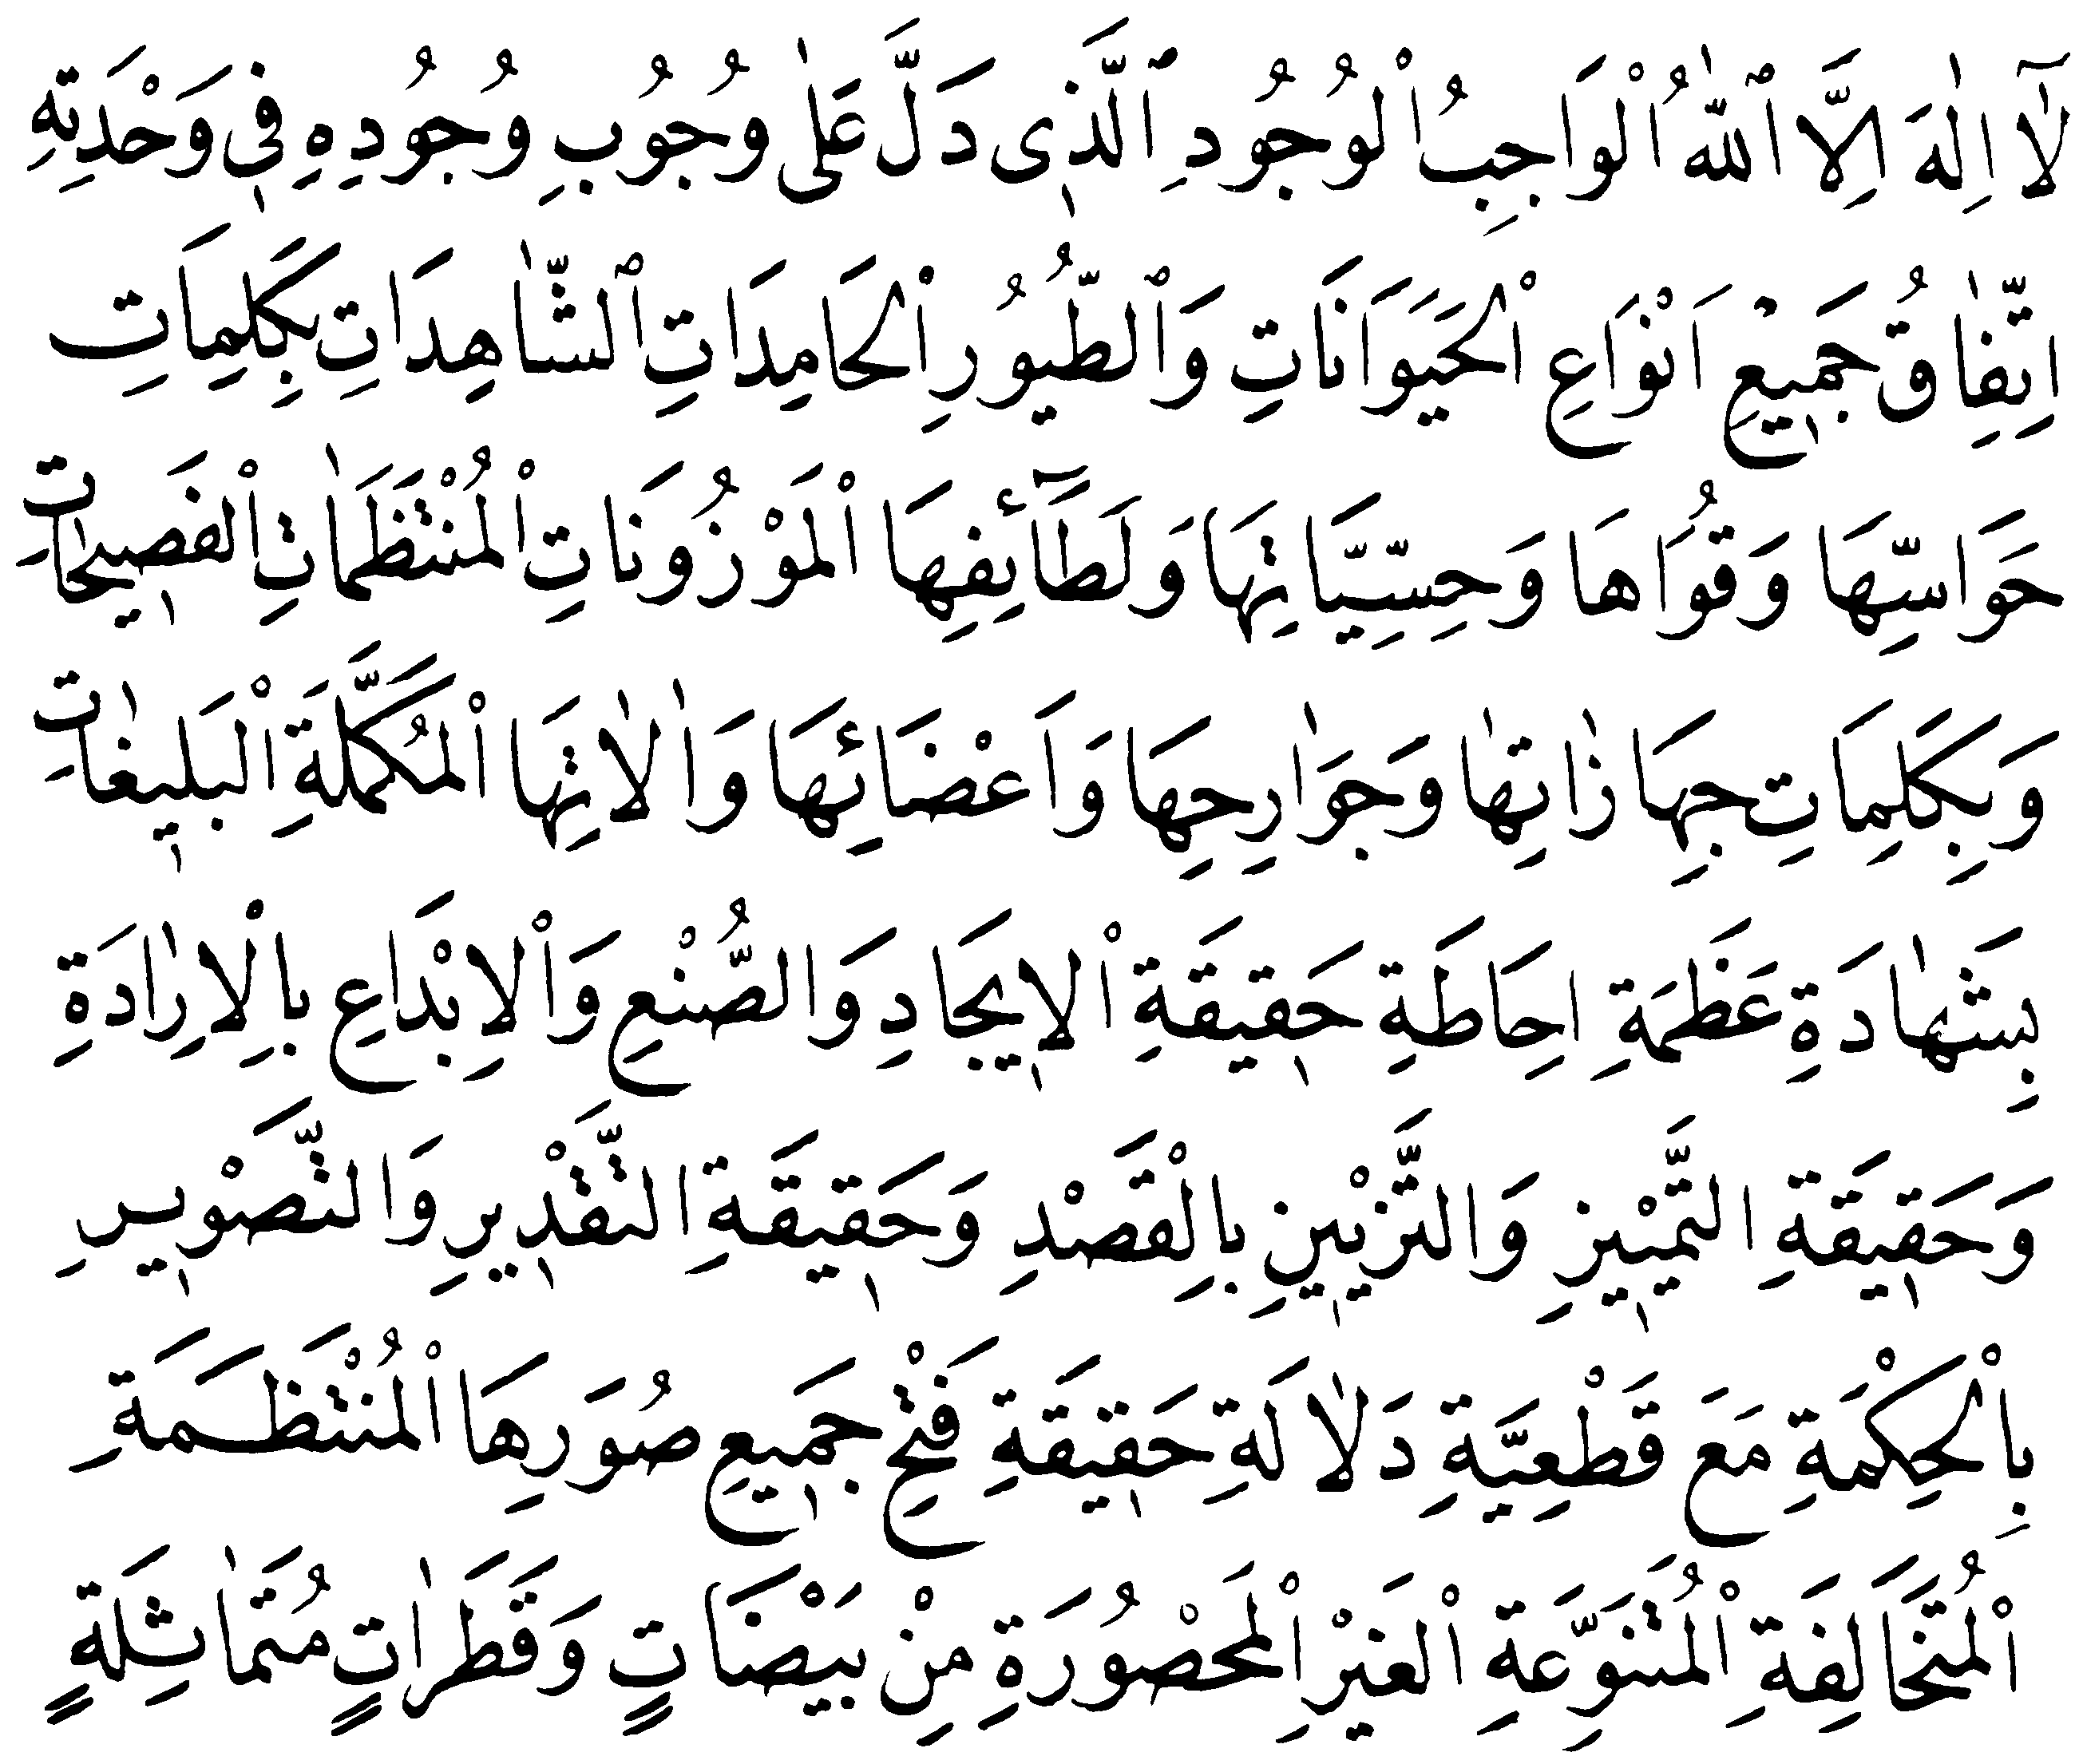 لَٓا اِلٰهَ اِلَّا ٱللّٰهُ ٱلْوَاجِبُ ٱلْوُجُودِ ٱلَّذِى دَلَّ عَلٰى وُجُوبِ وُجُودِهِ فِى وَحْدَتِهِ
اِتِّفَاقُ جَمِيعِ اَنْوَاعِ ٱلْحَيَوَانَاتِ وَٱلطُّيُورِ ٱلْحَامِدَاتِ ٱلشَّاهِدَاتِ بِكَلِمَاتِ
حَوَاسِّهَا وَقُوَاهَا وَحِسِّيَّاتِهَا وَلَطَٓائِفِهَا ٱلْمَوْزُونَاتِ ٱلْمُنْتَظَمَاتِ ٱلْفَصِيحَاتِ
وَبِكَلِمَاتِ جِهَازَاتِهَا وَجَوَارِحِهَا وَاَعْضَائِهَا وَاٰلَاتِهَا ٱلْمُكَمَّلَةِ ٱلْبَلِيغَاتِ
بِشَهَادَةِ عَظَمَةِ اِحَاطَةِ حَقِيقَةِ ٱلْاِيجَادِ وَالصُّنْعِ وَٱلْاِبْدَاعِ بِاِلْاِرَادَةِ
وَحَقِيقَةِ التَّمْيِيزِ وَالتَّزْيِينِ بِالْقَصْدِ وَحَقِيقَةِ التَّقْدِيرِ وَالتَّصْوِيرِ
بِاْلْحِكْمَةِ مَعَ قَطْعِيَّةِ دَلَالَةِ حَقِيقَةِ فَتْحِ جَمِيعِ صُوَرِهَا ٱلْمُنْتَظَمَةِ
ٱلْمُتَخَالِفَةِ ٱلْمُتَنَوِّعَةِ ٱلْغَيْرِ ٱلْمَحْصُورَةِ مِنْ بَيْضَاتٍ وَقَطَرَاتٍ مُتَمَاثِلَةٍ